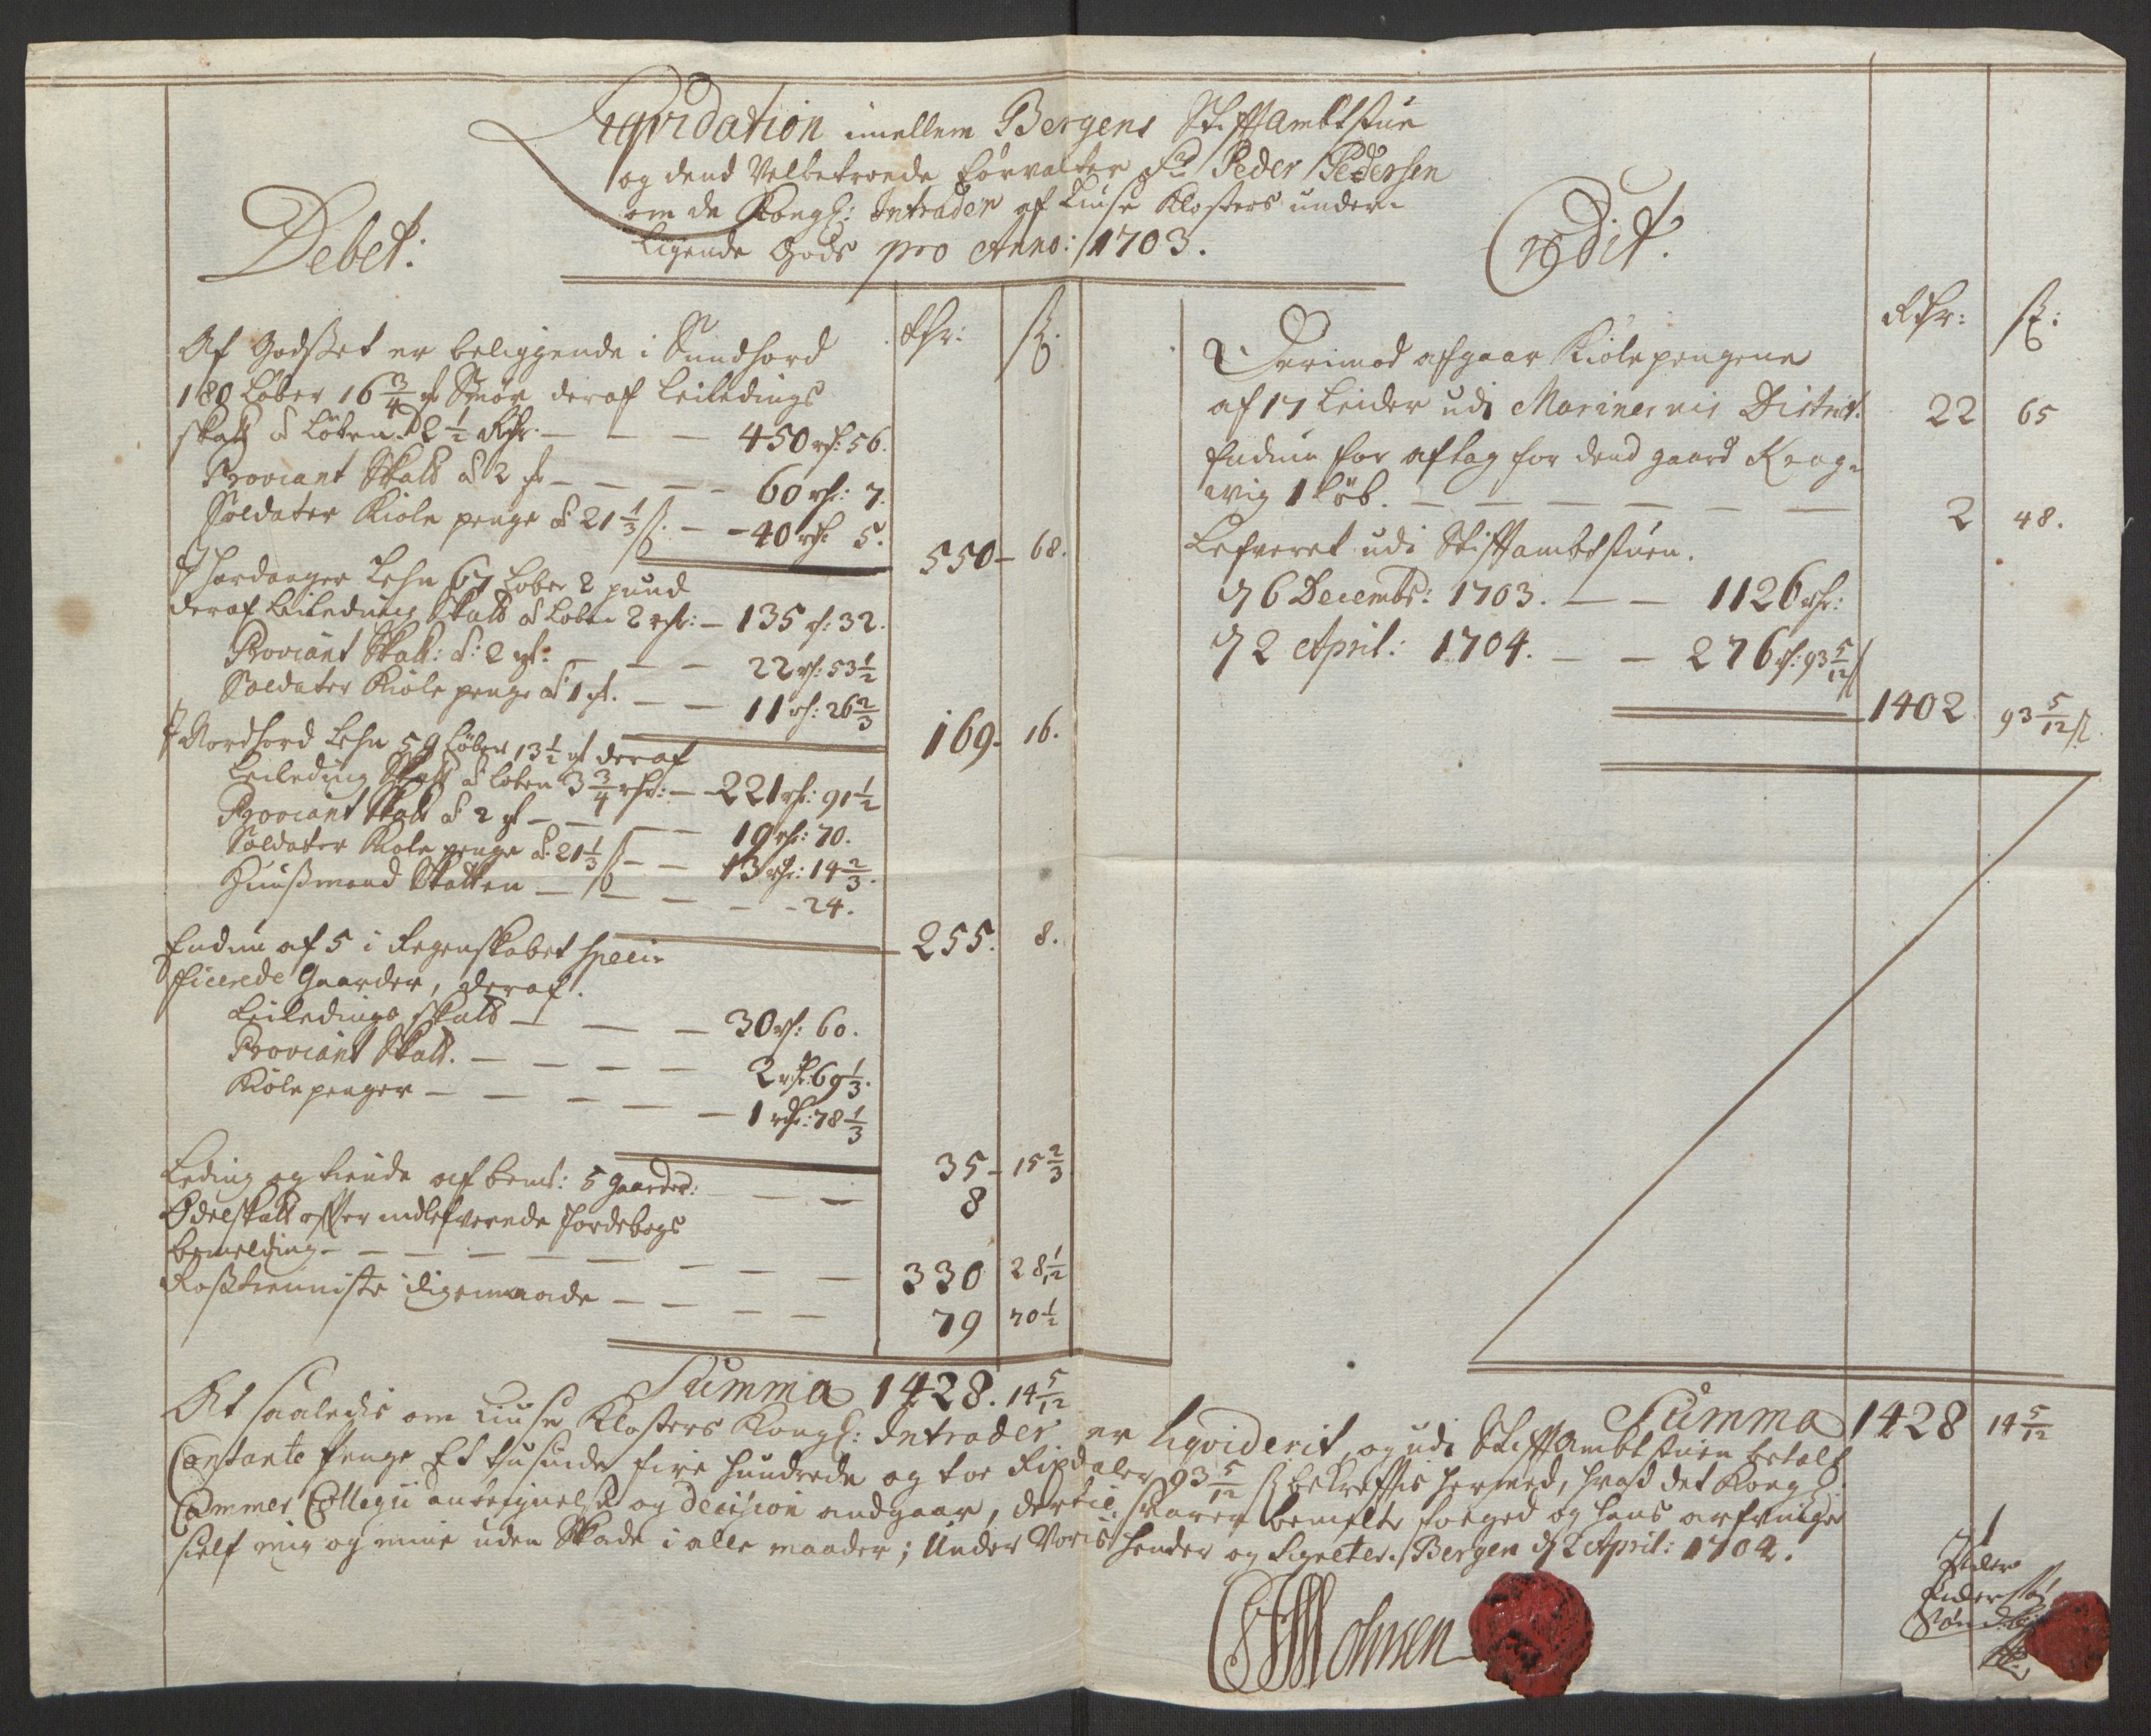 Liqvidation imellem Bergens Stiftambtstue
og dend Velbetroede Forvalter Sr Peder Pedersen
om de Kongl: Intrader af Liuse Klosters under-
ligende Gods pro Anno: 1703.
Debet:
Rdr: ß:
Af Godsset er beliggende i Sundhord
180 Løber 16 3/4 Smør deraf Leiledings
skatt à Løben 2 1/2 Rdr. — — — 450 rd: 56.
Proviant Skatt à 2 — — — — 60 rd: 7.
Soldater Kiole penge à 21 1/3 ß. — — 40 rd 5.
550 — 68.
J Hardanger Lehn 67 Løber 2 pund
deraf Leileding Skatt à Løben 2 rdr: — 135 rd: 32.
Proviant Skatt: à: 2 — — — 22 rd: 53 1/2
Soldater Kiole penge à 1 — — 11 rd: 26 2/3
169 — 16.
J Nordhord Lehn 59 Løber 13 1/2 deraf
Leileding Skatt à Løben 3 3/4 rdr: — 221 rd: 91 1/2
Proviant Skatt à 2 — — — 19 rd: 70.
Soldater Kiole penge à 21 1/3 ß — — 13 rd: 14 2/3.
Huusmand Skatten — — — — 24.
255. 8.
Endnu af 5 i Regenskabet speci-
ficerede Gaarder, deraf.
Leiledings skatt — — — 30 rd: 60.
Proviant Skatt. — — — — 2 rd: 69 1/3.
Kiole penger — — — — — 1 rd: 78 1/3
35 — 15 2/3
Leding og tiende af bemt: 5 Gaarder: — — 8
Odelskatt efter indlefverede Jordebogs
bemelding — — — — — — — — 330 28 1/12
Rosstienniste ligemaade — — — — 79 20 1/2
Summa 1428. 14 5/12
Credit.
Rdr: ß:
Derimod afgaar Kiolepengene
af 17 Leider udi Marinernis District. 22 65
Endnu for aftag for dend gaard
wig 1 Løb. — — — — — — — 2 48.
Lefveret udi Stiftambtstuen.
d 6 Decembr: 1703. — — 1126 rdr:
d 2 April: 1704. — — 276 rd: 93 5/12 ß
1402 93 5/12 ß.
Summa 1428 14 5/12
At saaledis om Liuse Klosters Kongl: Intrader er Liqviderit, og udi Stiftambtstuen betalt
Contante Penge Et tusinde fire hundrede og toe Rixdaler 93 5/12 ß bekreftis hermed, hvad det Kongl:
Cammer Collegii antegnelse og Decision andgaar, dertil svarer bemelte foeged og hans arfvinger
sielf mig og mine uden Skade i alle maader; Under Voris hender og Signeter. Bergen d 2 April: 1704.